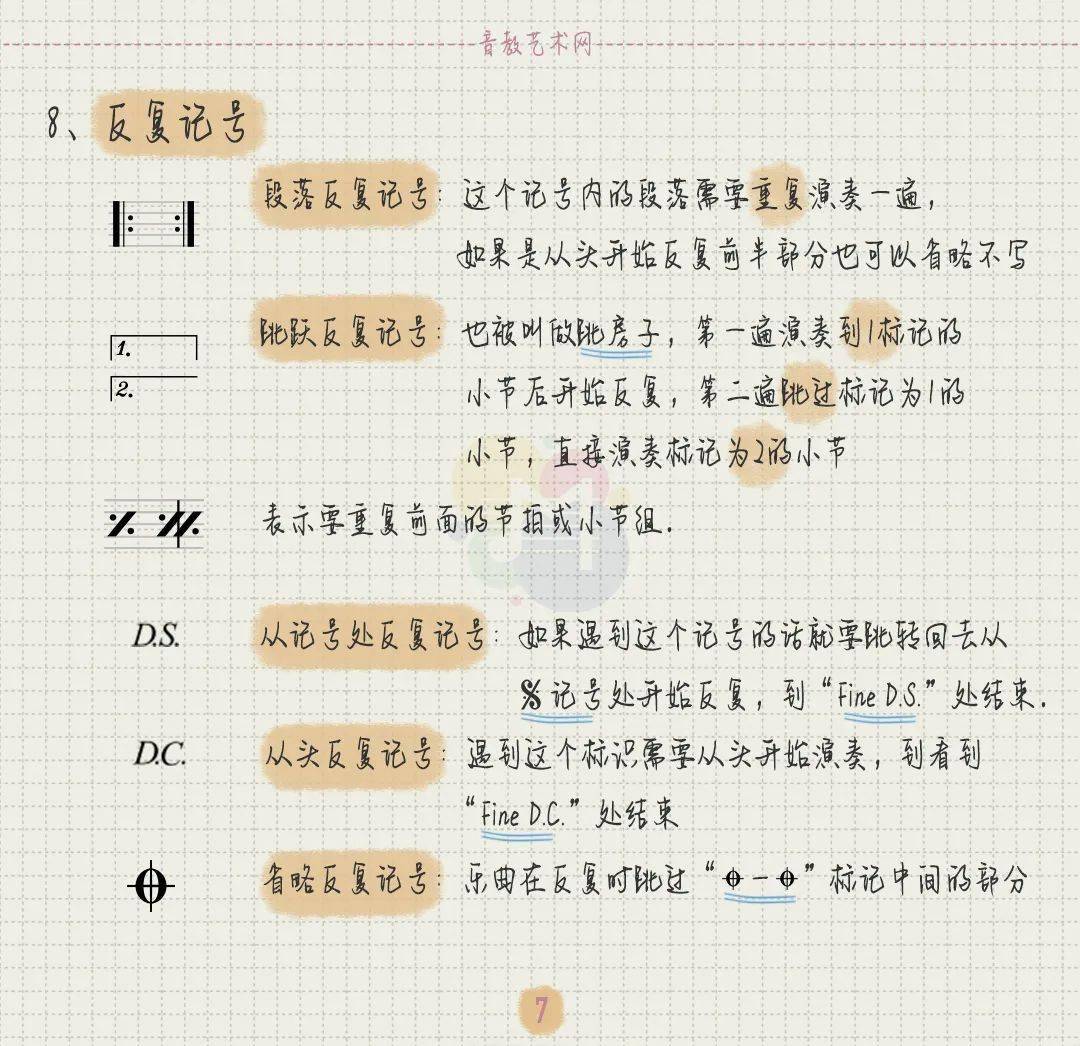 音教艺术网
8、反复记号
段落反复记号：这个记号内的段落需要重复演奏一遍，
如果是从头开始反复前半部分也可以省略不写
1.
2.
跳跃反复记号：也被叫做跳房子，第一遍演奏到1标记的
小节后开始反复，第二遍跳过标记为1的
小节，直接演奏标记为2的小节
表示要重复前面的节拍或小节组.
D.S. 从记号处反复记号：如果遇到这个记号的话就要跳转回去从
𝄋记号处开始反复，到“Fine D.S.”处结束.
D.C. 从头反复记号：遇到这个标识需要从头开始演奏，到看到
“Fine D.C.”处结束
省略反复记号：乐曲在反复时跳过“𝄌－𝄌”标记中间的部分
7